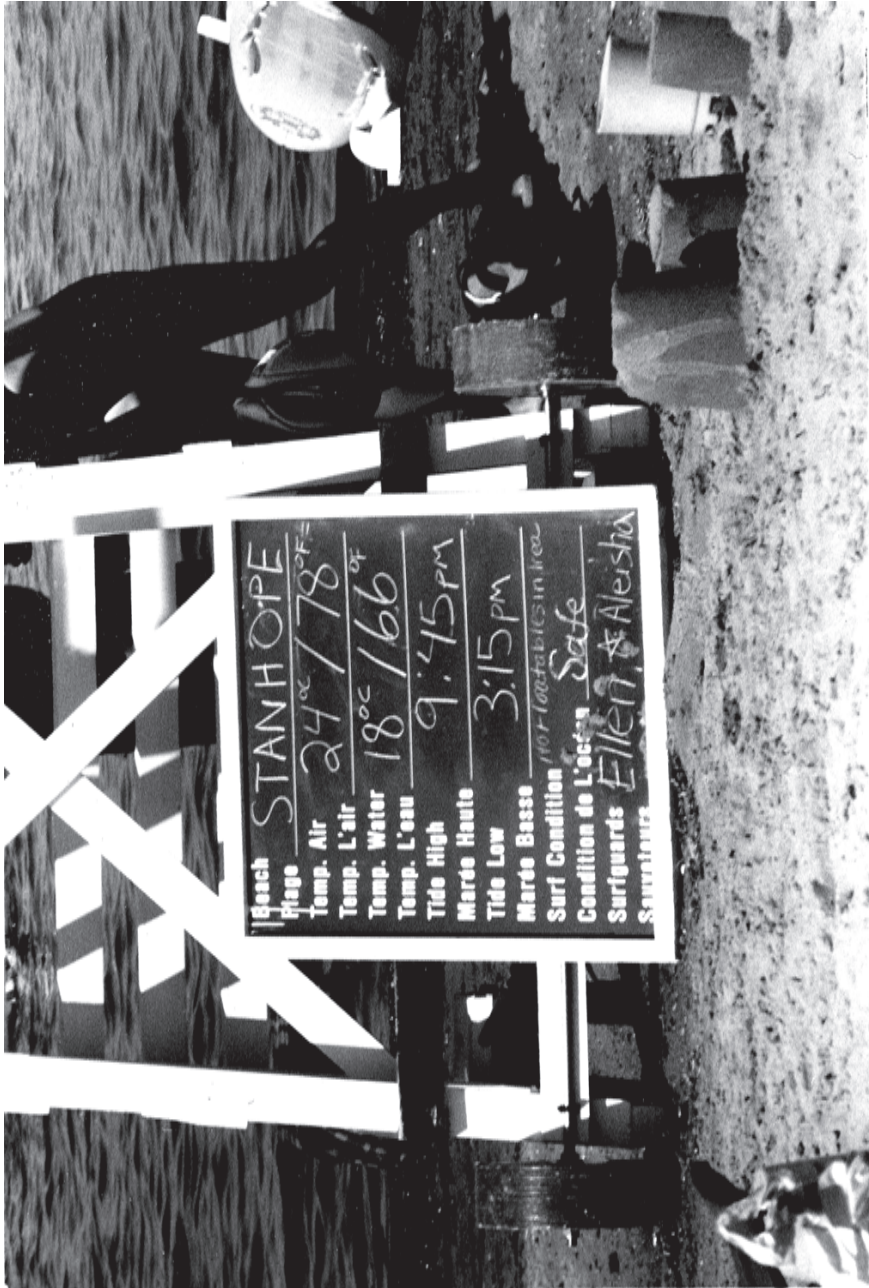 Beach STANHOPE
Plage
Temp. Air 24°C / 78°F
Temp. L'air
Temp. Water 18°C / 66°F
Temp. L'eau
Tide High 9:45 PM
Marée Haute
Tide Low 3:15 PM
Marée Basse
Surf Condition Not floatables in area
Condition de L'océan Safe
Surfguards Ellen & Aleisha
Sauveteurs